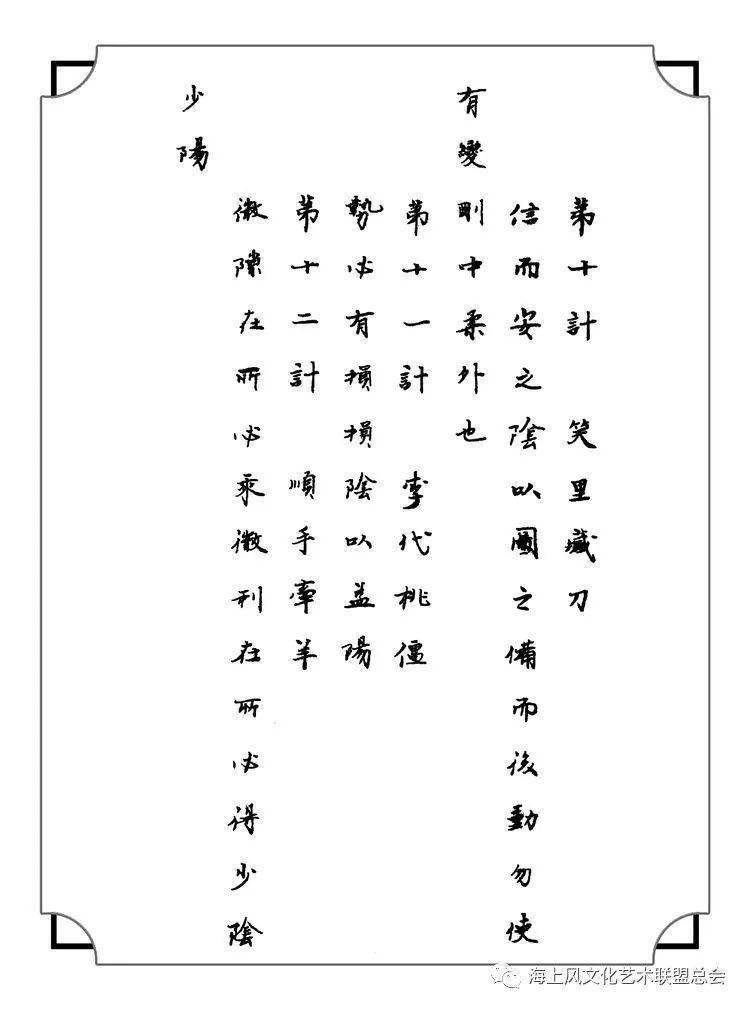 第十計　笑里藏刀
信而安之陰以圖之備而後動勿使
有變剛中柔外也
第十一計　李代桃僵
勢必有損損陰以益陽
第十二計　順手牽羊
微隙在所必乘微利在所必得少陰
少陽
海上风文化艺术联盟总会